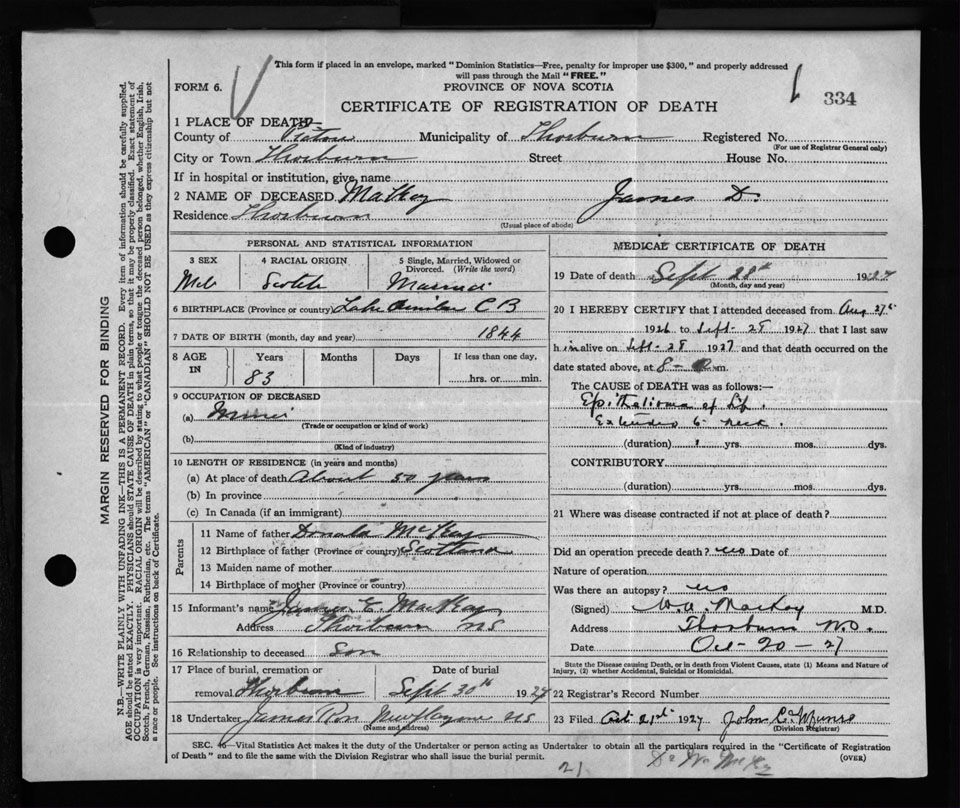 This form if placed in an envelope, marked "Dominion Statistics—Free, penalty for improper use $300," and properly addressed
will pass through the Mail "FREE."
FORM 6.
PROVINCE OF NOVA SCOTIA
334
CERTIFICATE OF REGISTRATION OF DEATH
1 PLACE OF DEATH—
County of Pictou Municipality of Thorburn Registered No.
(For use of Registrar General only)
City or Town Thorburn Street House No.
If in hospital or institution, give name
2 NAME OF DECEASED MacKay James D.
Residence Thorburn
(Usual place of abode)
PERSONAL AND STATISTICAL INFORMATION
3 SEX 4 RACIAL ORIGIN 5 Single, Married, Widowed or Divorced. (Write the word)
Male Scotch Married
6 BIRTHPLACE (Province or country) Lake Ainslie C B
7 DATE OF BIRTH (month, day and year) 1844
8 AGE IN Years Months Days If less than one day,
83 hrs. or min.
9 OCCUPATION OF DECEASED
(a) Miner
(Trade or occupation or kind of work)
(b)
(Kind of industry)
10 LENGTH OF RESIDENCE (in years and months)
(a) At place of death About 50 years
(b) In province
(c) In Canada (if an immigrant)
Parents
11 Name of father Donald McKay
12 Birthplace of father (Province or country) Scotland
13 Maiden name of mother
14 Birthplace of mother (Province or country)
15 Informant's name James E. MacKay
Address Thorburn NS
16 Relationship to deceased Son
17 Place of burial, cremation or Date of burial
removal Thorburn Sept 30th 1927
18 Undertaker James Ross New Glasgow NS
(Name and address)
MEDICAL CERTIFICATE OF DEATH
19 Date of death Sept 28th 1927
(Month, day and year)
20 I HEREBY CERTIFY that I attended deceased from Aug 27th
1926 to Sept- 28 1927 that I last saw
him alive on Sept- 28 1927 and that death occurred on the
date stated above, at 8- m.
The CAUSE of DEATH was as follows:—
Epithelioma of Lip.
Extended to neck.
(duration) 1 yrs. mos. dys.
CONTRIBUTORY
(duration) yrs. mos. dys.
21 Where was disease contracted if not at place of death?
Did an operation precede death? no Date of
Nature of operation
Was there an autopsy? no
(Signed) W.A. MacKay M.D.
Address Thorburn N.S.
Date Oct- 20 - 27
State the Disease causing Death, or in death from Violent Causes, state (1) Means and Nature of
Injury, (2) whether Accidental, Suicidal or Homicidal.
22 Registrar's Record Number
23 Filed Oct 21st 1927 John C. Munro
(Division Registrar)
SEC. —Vital Statistics Act makes it the duty of the Undertaker or person acting as Undertaker to obtain all the particulars required in the "Certificate of Registration
of Death" and to file the same with the Division Registrar who shall issue the burial permit.
(OVER)
21 Dr W McKay
MARGIN RESERVED FOR BINDING
N.B.—WRITE PLAINLY WITH UNFADING INK—THIS IS A PERMANENT RECORD. Every item of information should be carefully supplied.
AGE should be stated EXACTLY. PHYSICIANS should STATE CAUSE OF DEATH in plain terms, so that it may be properly classified. Exact statement of
OCCUPATION is very important. RACIAL ORIGIN will be described by stating to what people or tongue the deceased person belonged, whether English, Irish,
Scotch, French, German, Russian, Ruthenian, etc. The terms "AMERICAN" or "CANADIAN" SHOULD NOT BE USED as they express citizenship but not
a race or people. See instructions on back of Certificate.